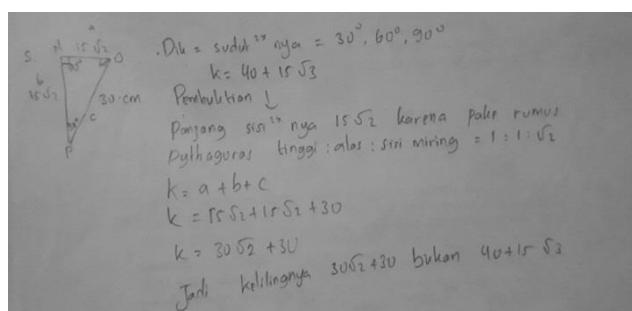 5. N 15√2 O
.Dik = sudut²ⁿ nya = 30°, 60°, 90°
k = 40 + 15√3
b
15√2
30 cm
c
P
Pembuktian ↓
Panjang sisi²ⁿ nya 15√2 karena pake rumus
pythaguras tinggi : alas : sisi miring = 1 : 1 : √2
k = a + b + c
k = 15√2 + 15√2 + 30
k = 30√2 + 30
Jadi kelilingnya 30√2 + 30 bukan 40 + 15√3